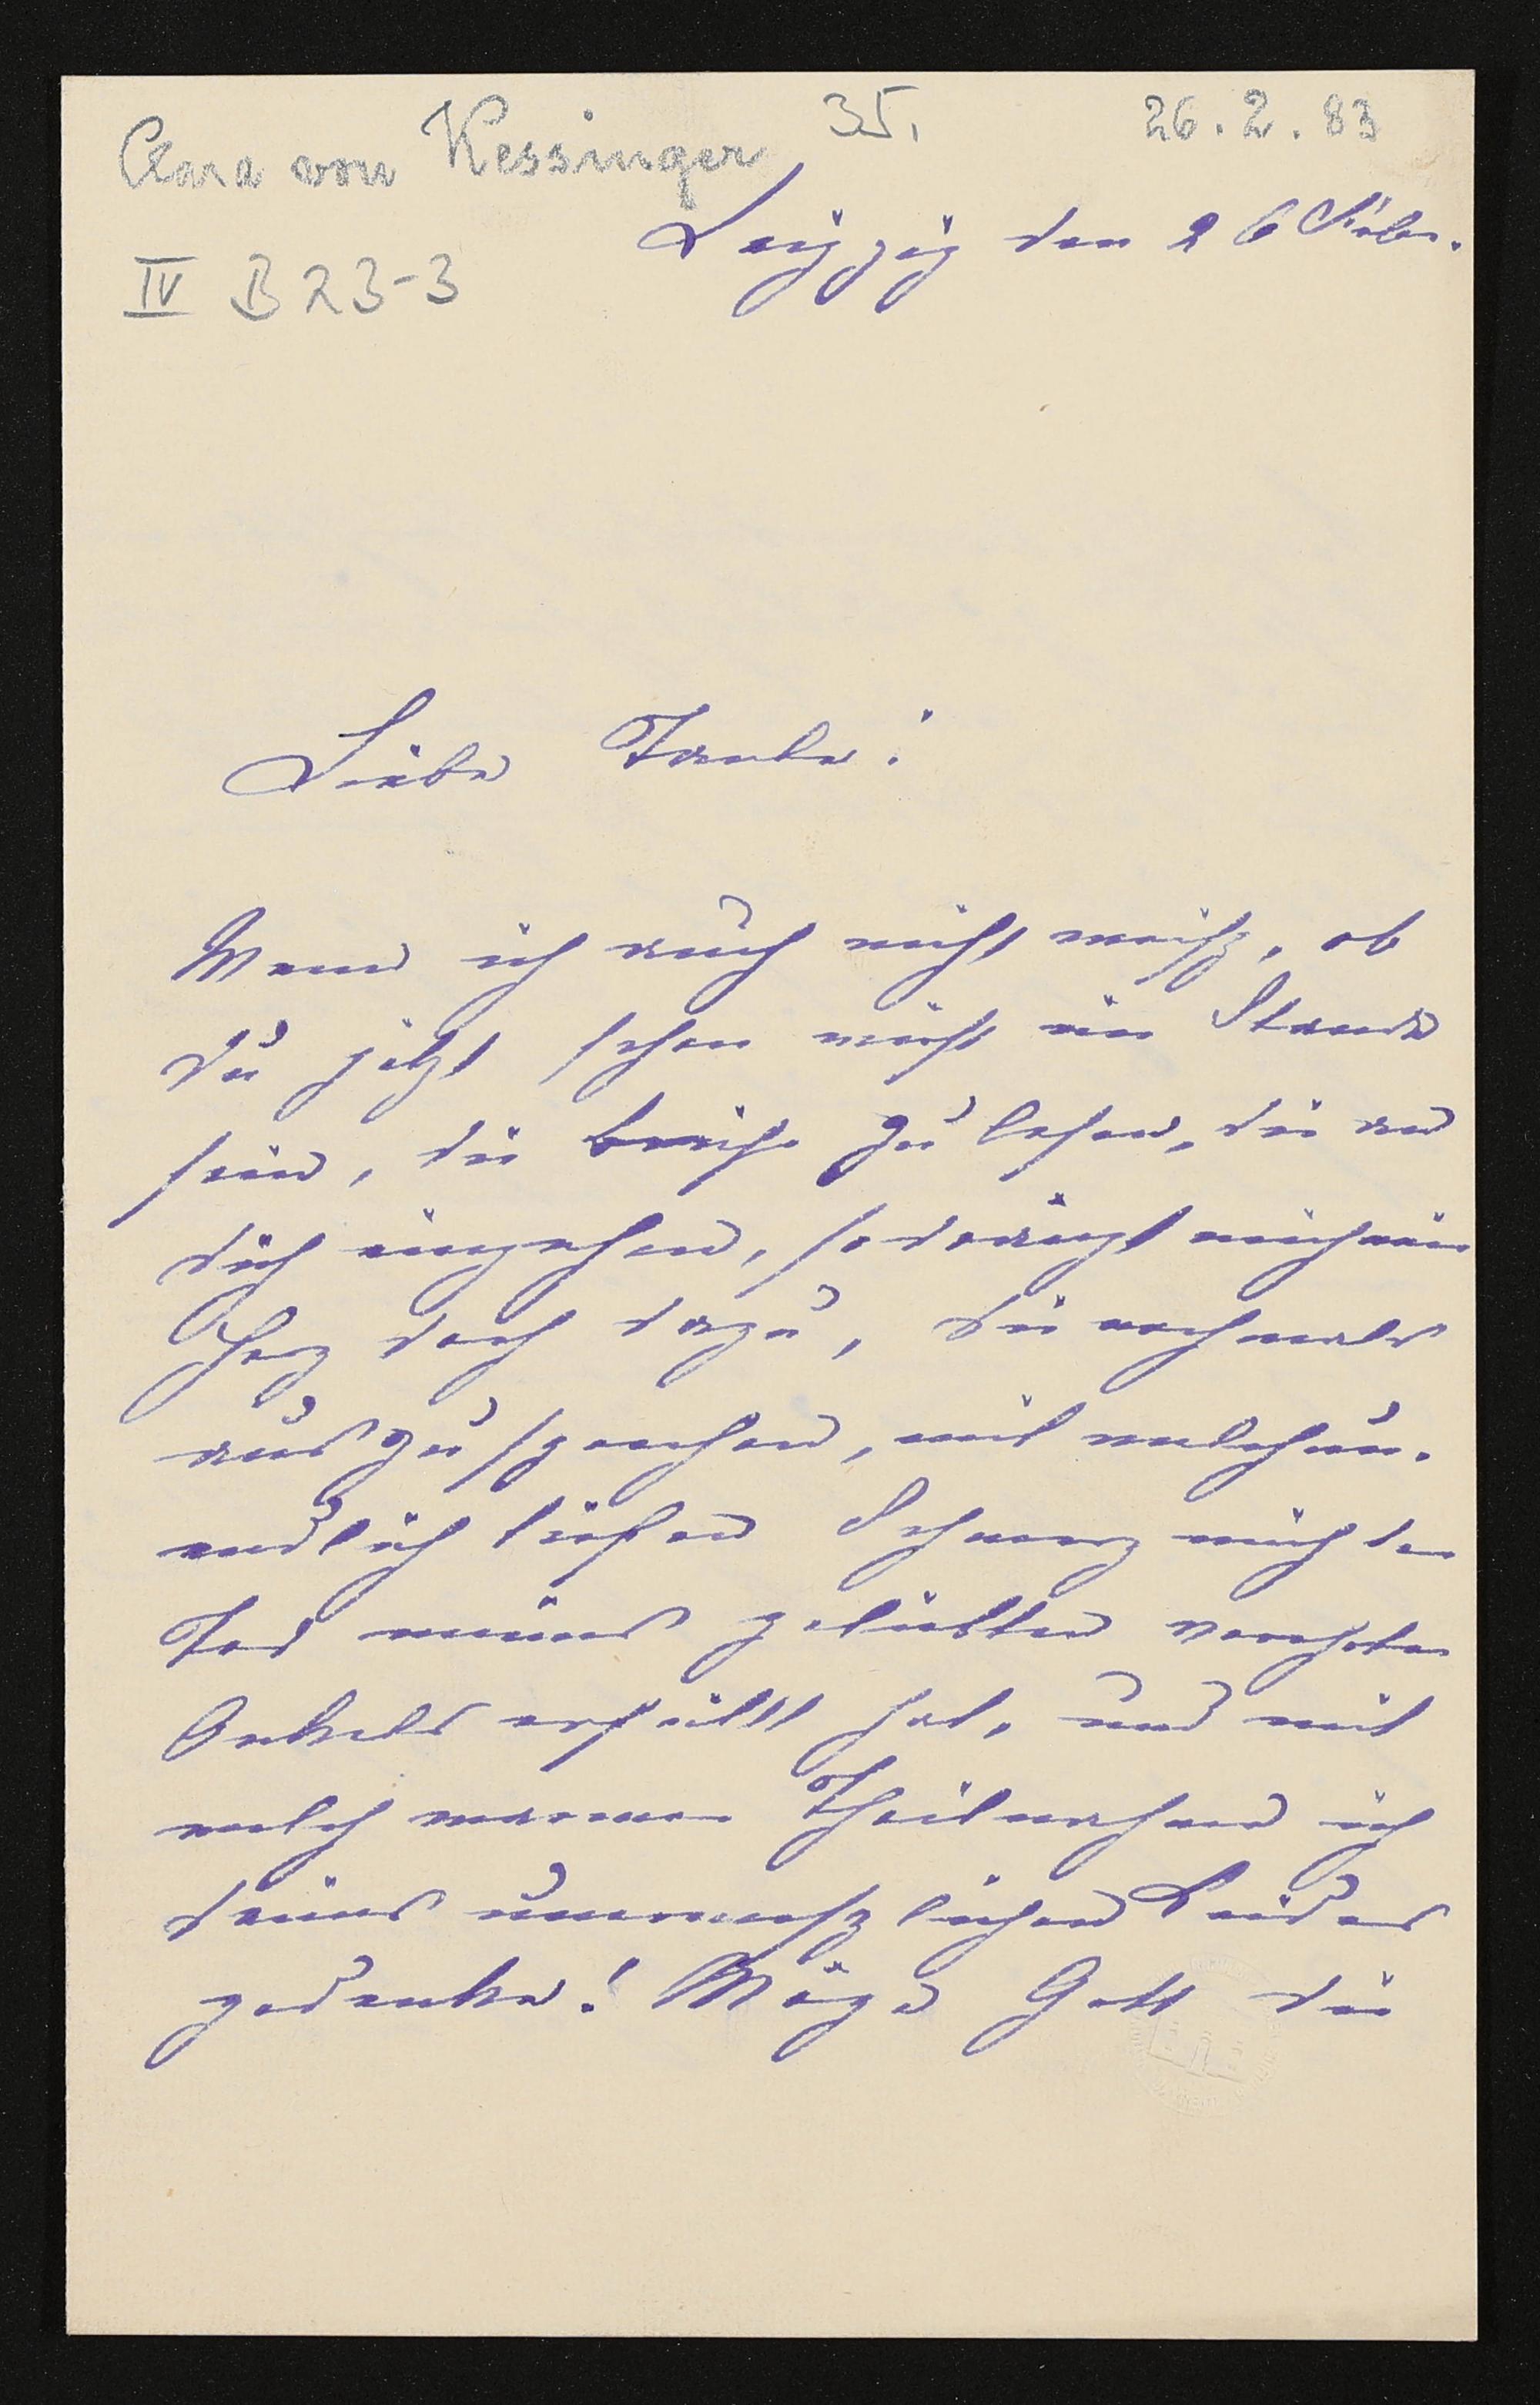 Clara von Kessinger 35. 26.2.83
Leipzig den 26 Febr.
IV B 23-3
Liebe Tante!
Wenn ich auch nicht weiß, ob
du jetzt schon wirst im Stande
sein, die Briefe zu lesen, die an
dich eingehen, so drängt mich mein
Herz doch dazu, dir nochmals
auszusprechen, mit welch un-
endlich tiefen Schmerz mich der
Tod meines geliebten verehrten
Onkels erfüllt hat, und mit
welch warmer Theilnahme ich
deines unermeßlichen Leides
gedenke! Möge Gott dir